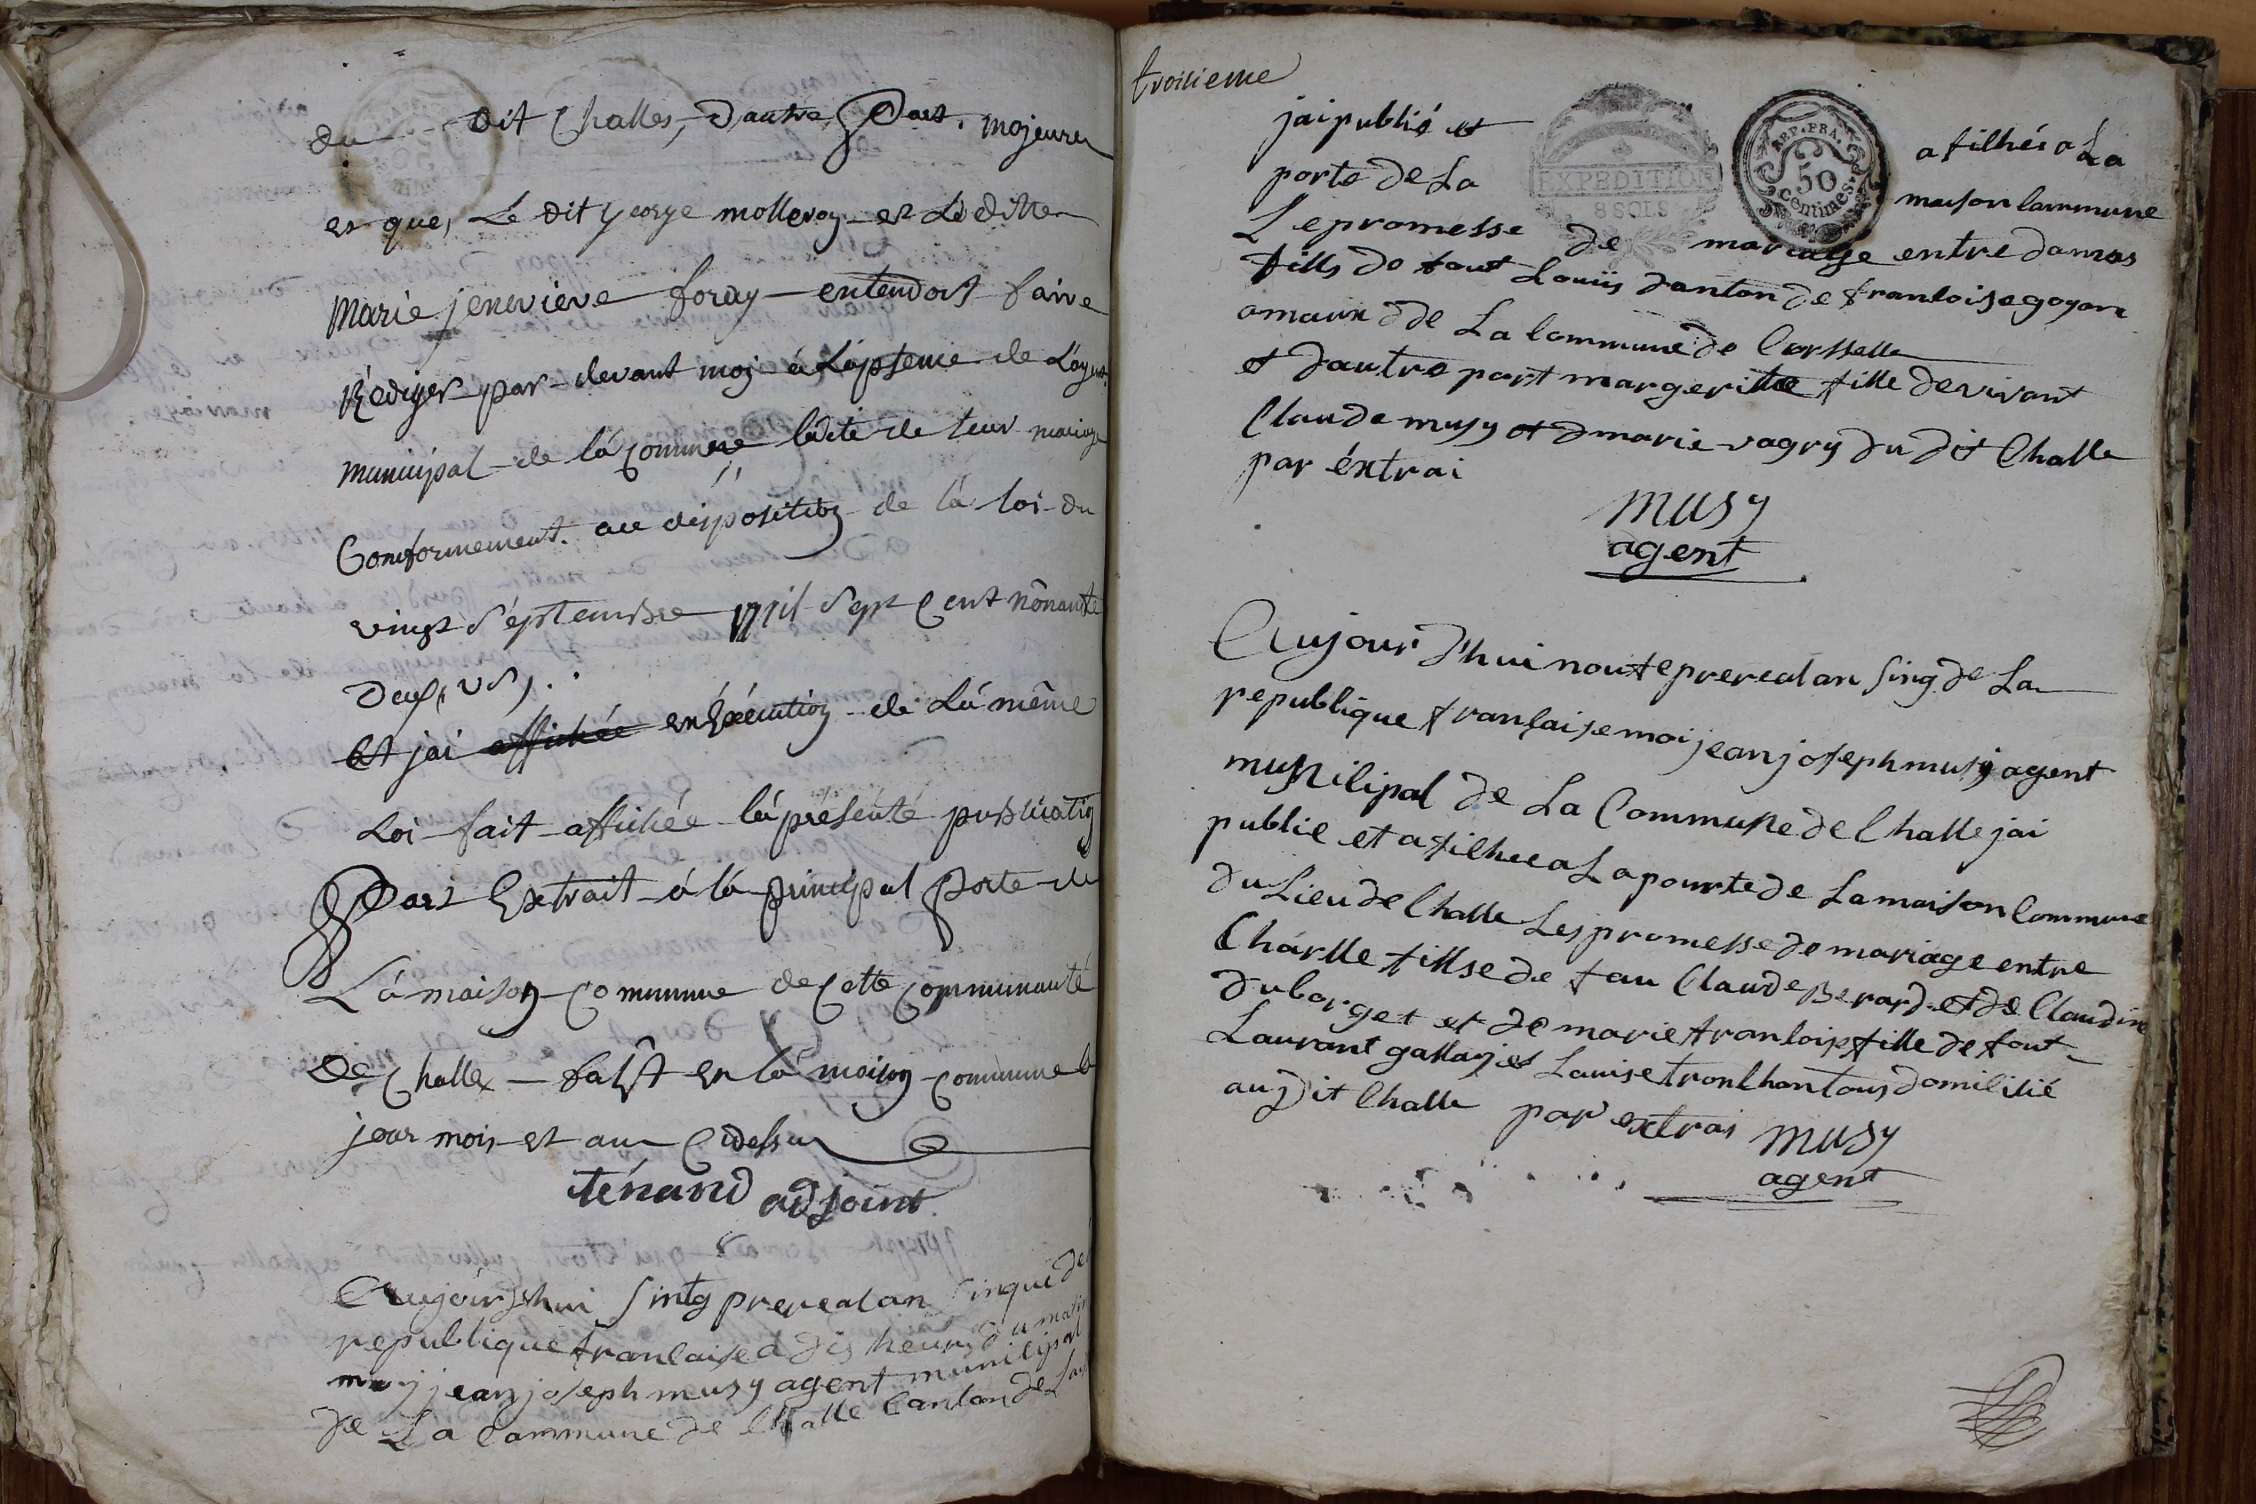 du dit Challes, D'autre Part. majeures
et que, Le dit george molleroy et La ditte
Marie jenevieve foray entendoit faire
Rédiger par devant moy á Lapsence de L'agent
municipal de lá commune lacte de leur mariage
Conformement au disposition de lá loi du
vingt Séptembre Mil Sept Cent nónante
Deux, v s, .
Et jai affichée en éxécution de Lá même
Loi fait affichée lá présenté publication
Part Extrait á lá principal porte de
Lá maison commune de Cette Communauté
De Challex fait en lá maison commune le
jour mois et an Cidessu
ténand adjoint
Aujóurdhui Sintq prerealan Sinqui de
republique francaise a dis heures du matin
moy jean joseph musy agent municipal
de La Commune de Challe Canton de
troisieme
jai publié et afilhés a La
porte de La maison Commune
Le promesse de mariage entre damas
fills de faut Louiis danton de francoise goyon
amaun dde La Commune de Corsselle
et dautre part margeritte fille de vivant
Claude musy et dmarie vagry du dit Challe
par éxtrai
musy
agent
REP. FRA.
50
Centimes
EXPEDITION
8 SOLS
Aujour d'hui noute prerealan Sinq de La
republique francaise moi jean joseph musy agent
musnilipal de La Commune de Challe jai
publie et afilhee a La pourte de La maison Commune
du Lieu de Challe Les promesse de mariage entre
Charlle fillse de fau Claude Berard et de Claudine
duborget et de marie francoise fille de fout
Laurant gallay et Louise tronchon tous domilitié
au dit Challe par extrai
musy
agent